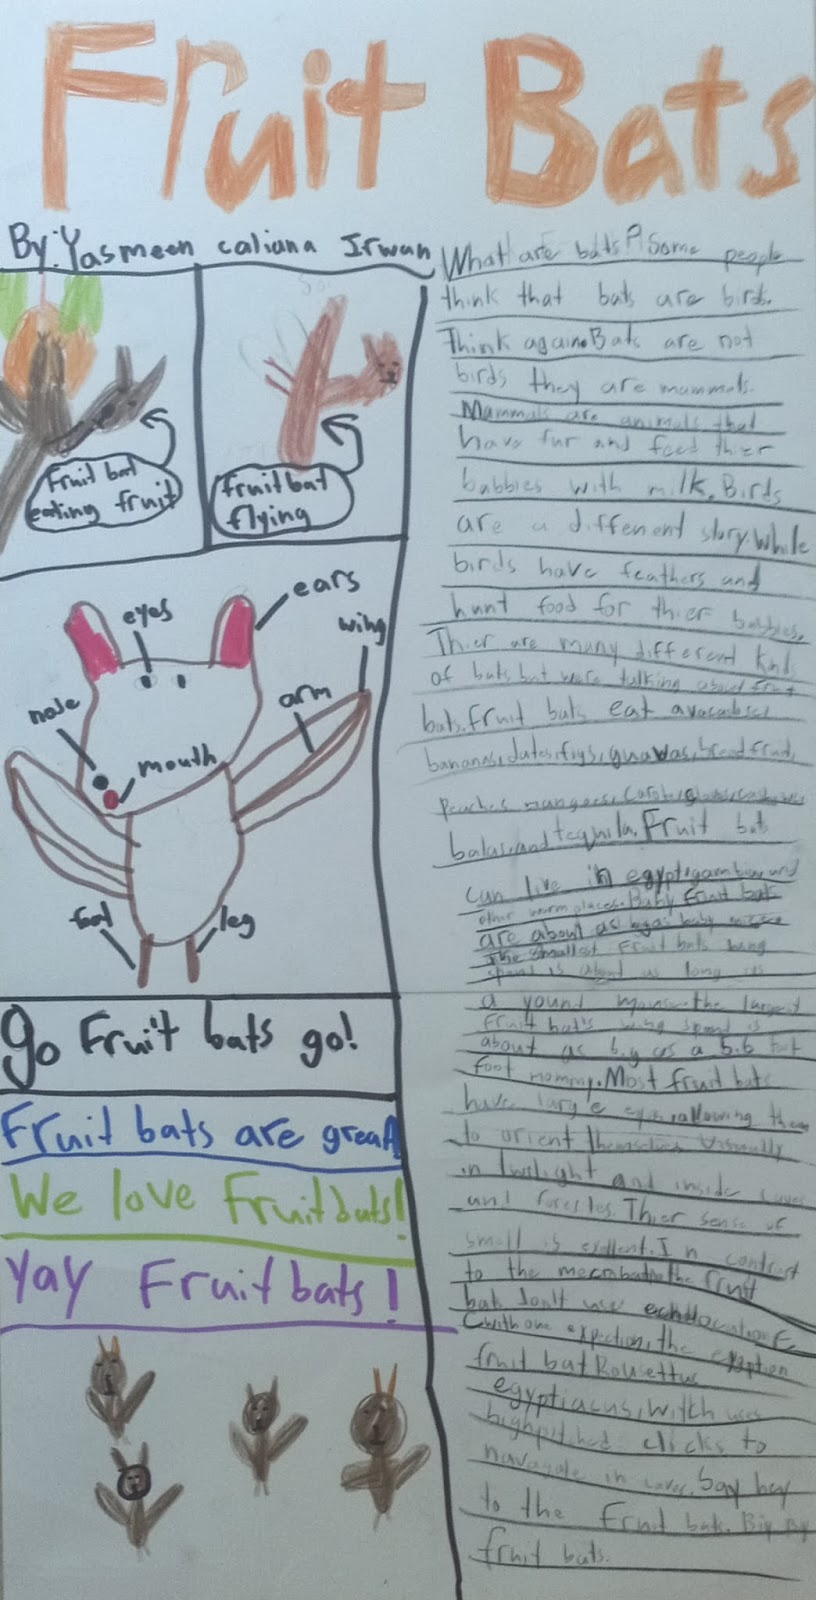 Fruit Bats
By: Yasmeen caliana Irwan
fruit bat
eating fruit
fruit bat
flying
ears
eyes
wing
arm
nose
mouth
leg
go Fruit bats go!
Fruit bats are great
We love Fruit bats!
Yay Fruit bats!
What are bats? Some people
think that bats are birds.
Think again. Bats are not
birds they are mammals.
Mammals are animals that
have fur and feed thier
babbies with milk. Birds
are a different story. While
birds have feathers and
hunt food for thier babbies.
Thier are many different kinds
of bats but were talking about fruit
bats. fruit bats eat
bananas, dates, figs, guavas, breadfruit,
Peaches, mangoes, carob,
and tequila. Fruit bats
can live in egypt, gambia, and
other warm places. Baby fruit bats
are about as big as a baby
The smallest fruit bats wing
spand is about as long as
a yound mans the largest
fruit bat's wing spand is
about as big as a 5.6
foot mommy. Most fruit bats
have large eyes, allowing them
to orient themselves visually
in twilight and inside caves
and forestes. Thier sense of
smell is exellent. In contrast
to the the fruit
bats don't use echolocation
(with one expection, the
fruit bat Rousettus
egyptiacus, witch uses
highpitched clicks to
navagate in caves. Say bey
to the fruit bats. Biy By
fruit bats.